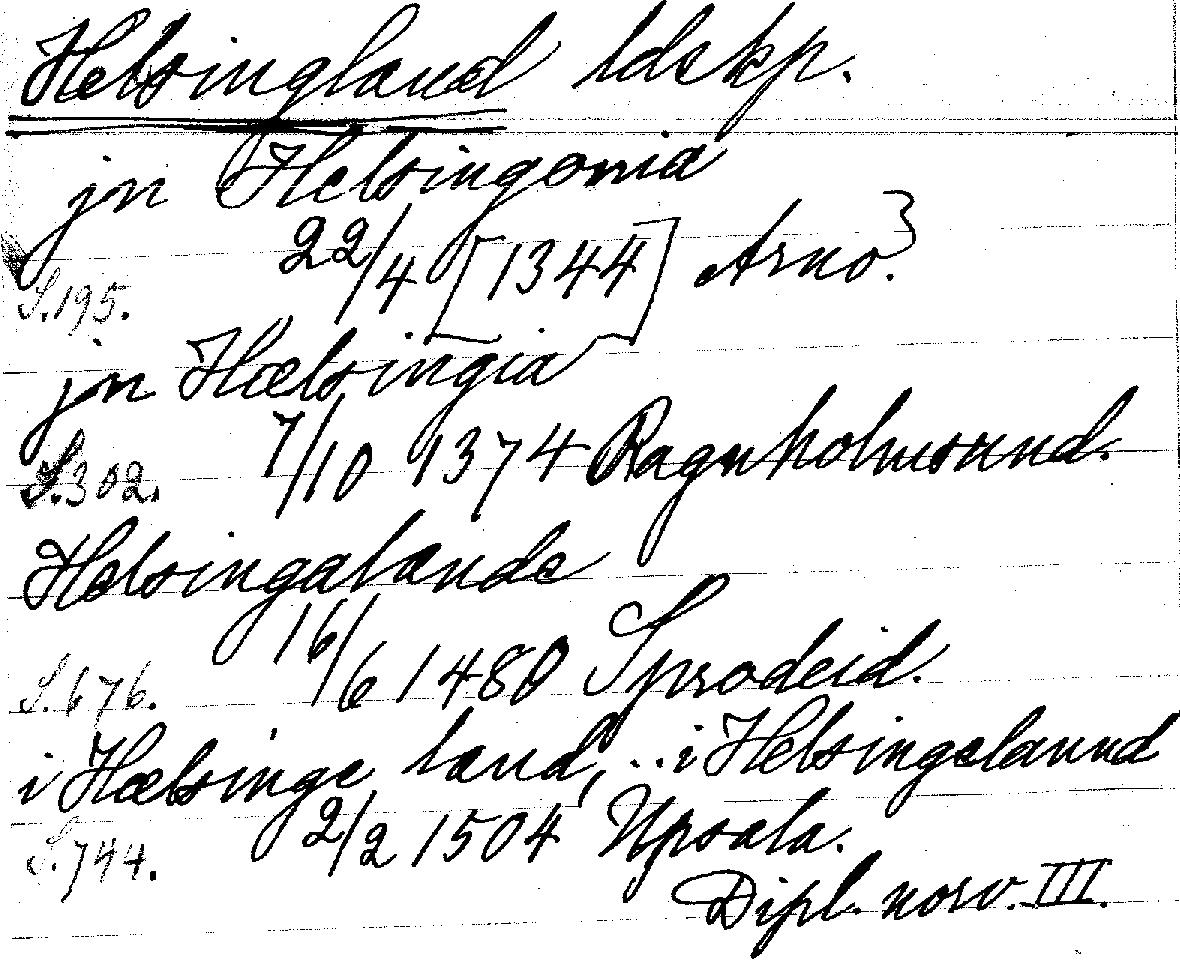 Helsingland ldskp.
jn Helsingonia
22/4 [1344] Arno.
S.195.
jn Hælsingia
S.302. 7/10 1374 Ragnholmsund.
Helsingalande
16/6 1480 Sprodeid.
S.676.
i Hælsinge land, ... i Helsingelannd
S.744. 2/2 1504 Upsala.
Dipl. norv. III.